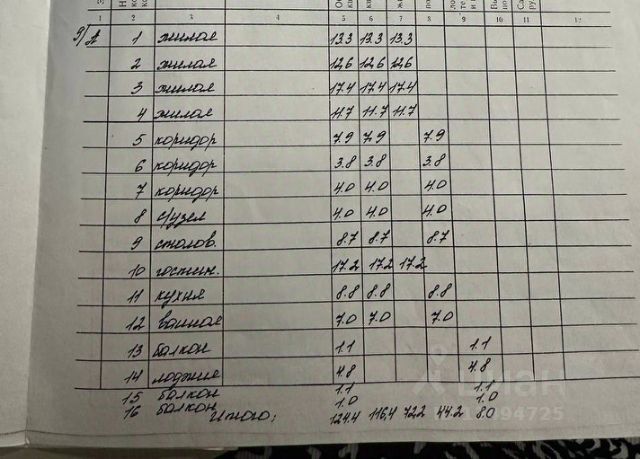 1 2 3 4 5 6 7 8 9 10 11 12
9/ А 1 жилая 13.3 13.3 13.3
2 жилая 12.6 12.6 12.6
3 жилая 17.4 17.4 17.4
4 жилая 11.7 11.7 11.7
5 коридор 7.9 7.9 7.9
6 коридор 3.8 3.8 3.8
7 коридор 4.0 4.0 4.0
8 с/узел 4.0 4.0 4.0
9 столов. 8.7 8.7 8.7
10 гостин. 17.2 17.2 17.2
11 кухня 8.8 8.8 8.8
12 ванная 7.0 7.0 7.0
13 балкон 1.1 1.1
14 лоджия 4.8 4.8
15 балкон 1.1 1.1
16 балкон 1.0 1.0
Итого: 124.4 116,4 72.2 44.2 8.0
циан